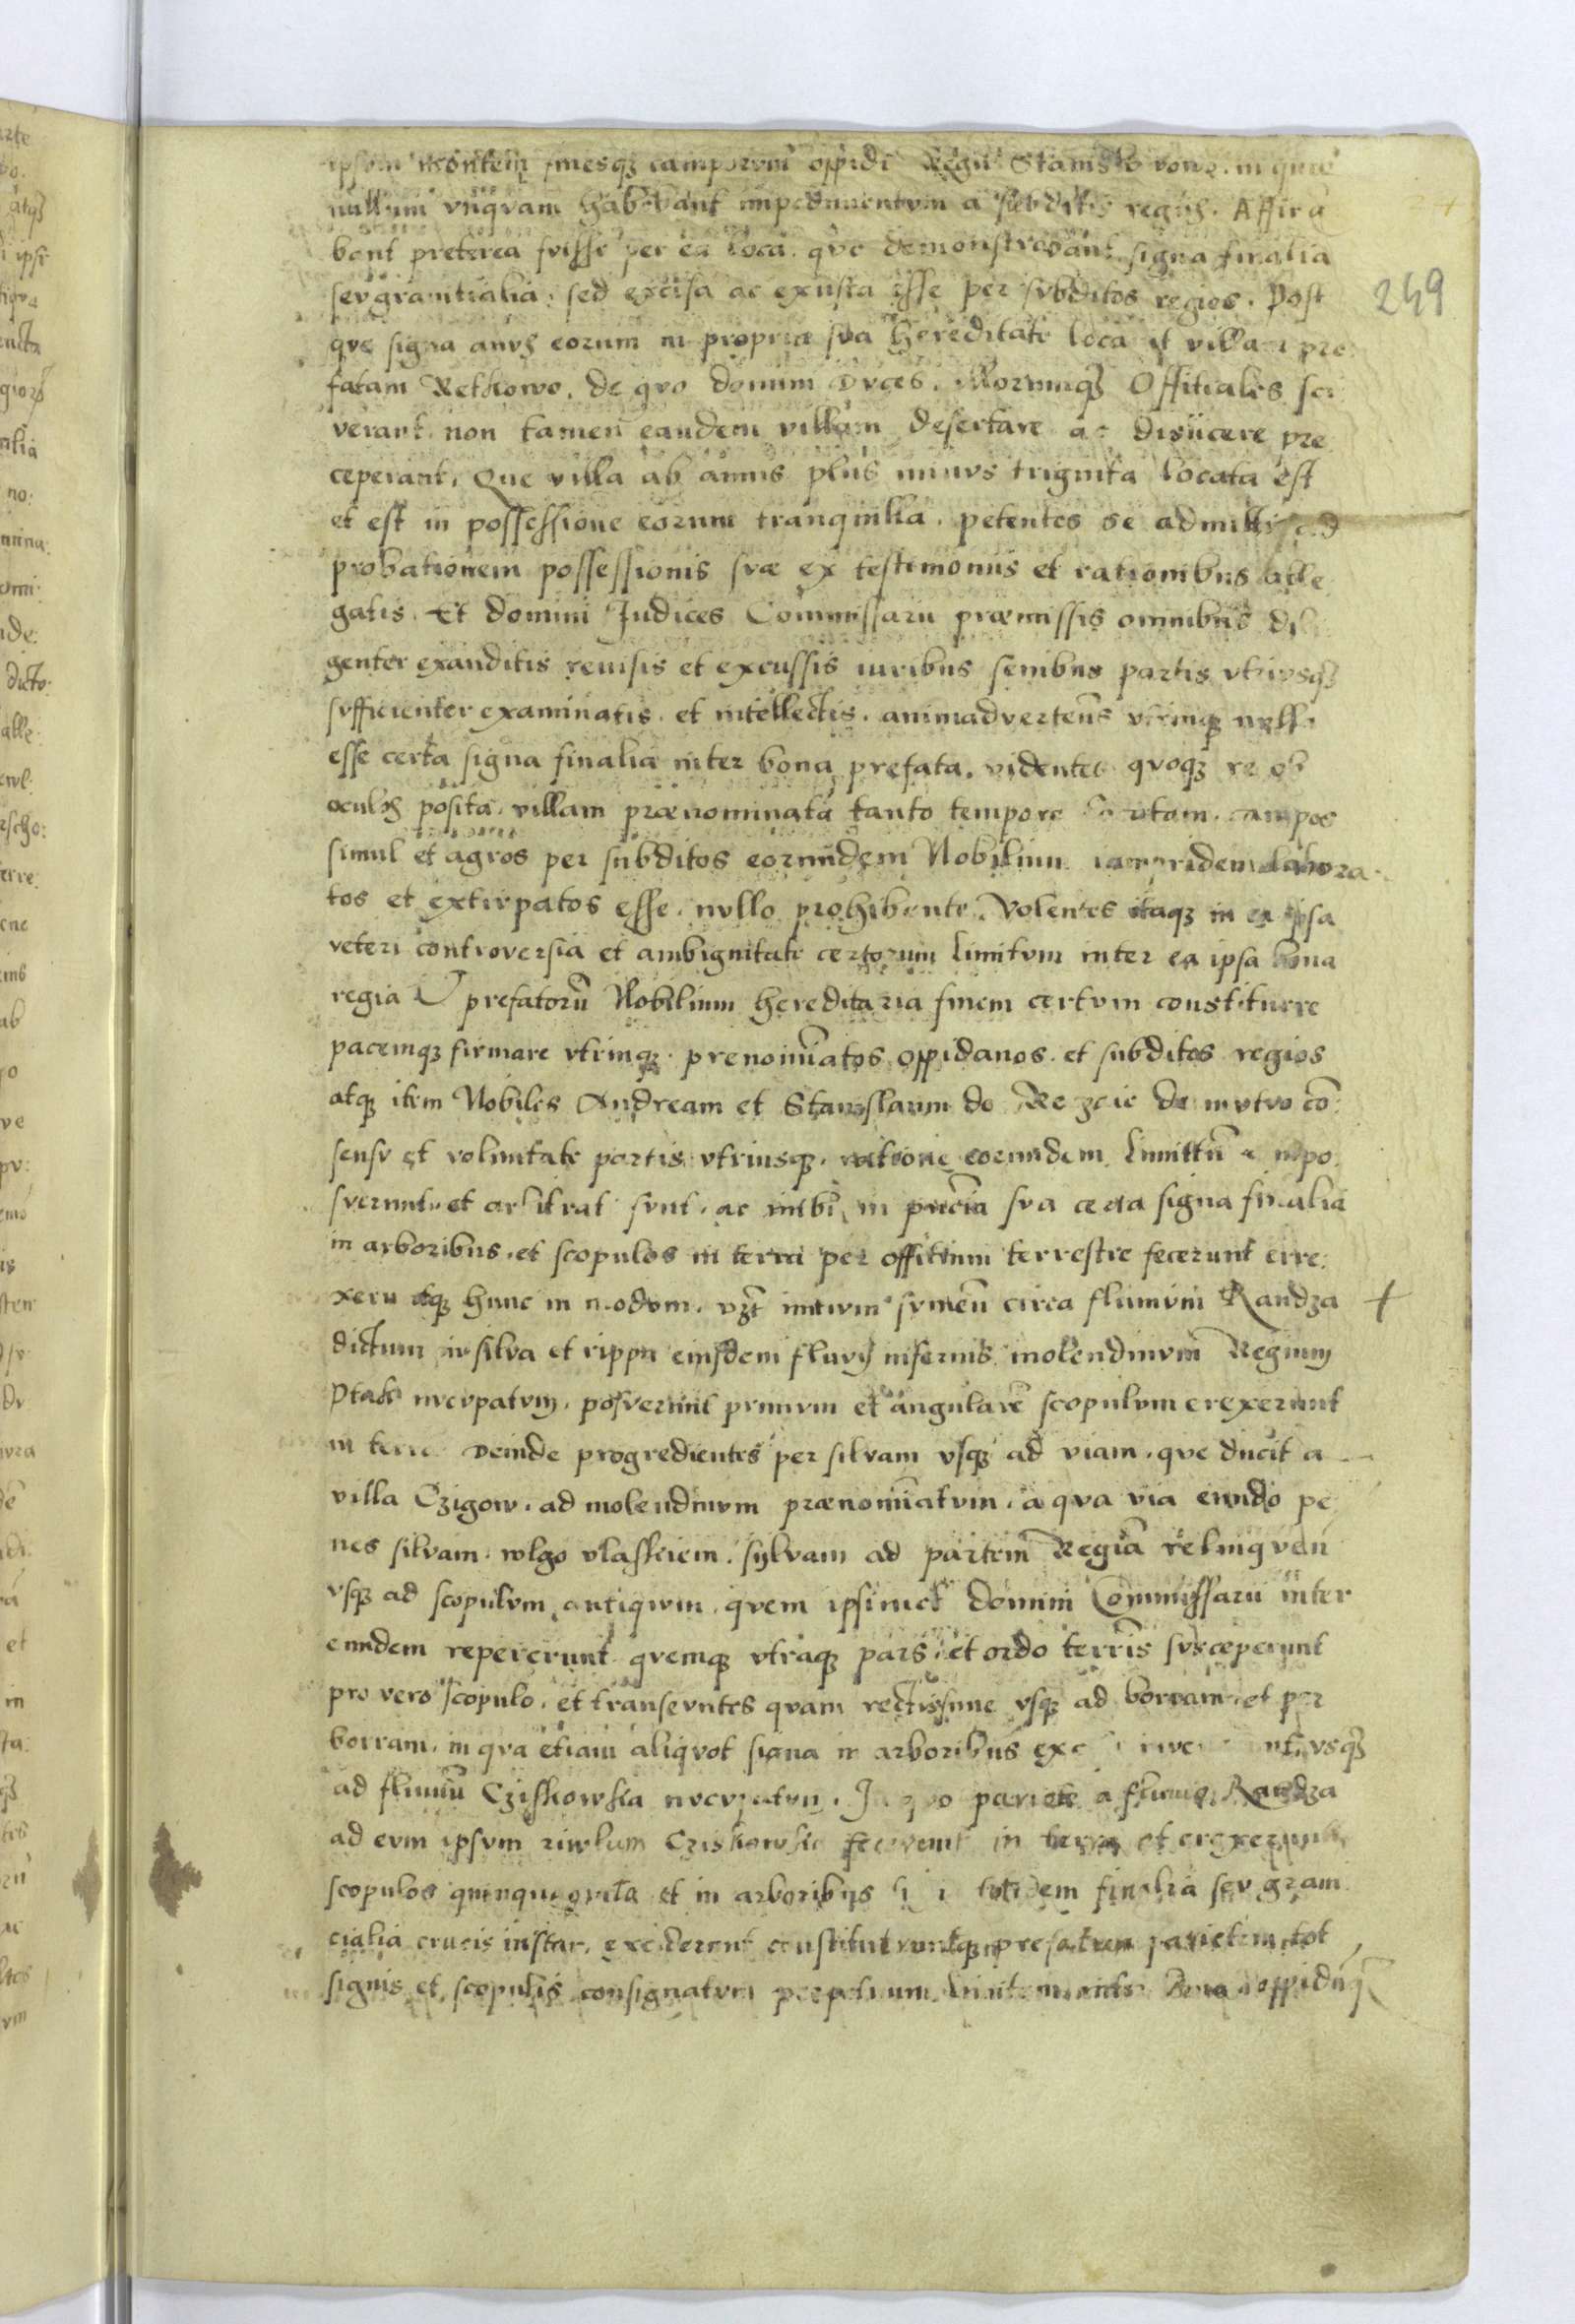 ipsum montem finesqȝ camporum oppidi Regii Stanislavowo. in quie
nullum vnqvam habebant impedimentvm a subditis regiis. Affirma
bant preterea fvisse per ea loca. qve demonstrabant signa finalia
sev granitialia: sed excisa ac exusta esse per svbditos regios. Post
qve signa avvs eorum in propria sva hereditate loca et villam pre
fatam Rethkowo. de qvo domini Dvces. Eorumqȝ Offitiales sci
verant. non tamen eandem villam desertare ac disiicere pre
ceperant. Que villa ab annis plus minvs triginta locata est
et est in possessione eorum tranquilla. petentes se admitti ad
probationem possessionis svæ ex testimoniis et rationibus alle
gatis. Et domini Judices Commissarii præmissis omnibus dili
genter exauditis revisis et excussis iuribus senibus partis vtrivsqȝ
svfficienter examinatis. et intellectis. animadvertens vtrinqȝ nulla
esse certa signa finalia inter bona prefata. videntes qvoqȝ re ob
oculos posita. villam prænominatā tanto tempore locatam. campos
simul et agros per subditos eorundem Nobilium iampridem labora
tos et extirpatos esse. nvllo prohibente. Volentes itaqȝ in ea ipsa
veteri controversia et ambiguitate certorum limitvm inter ea ipsa bona
regia & prefatorū Nobilium hereditaria finem certvm constituere
pacemqȝ firmare vtrinqȝ. prenominatos oppidanos. et subditos regios
atqȝ item Nobiles Andream et Stanislaum de de mvtvo cō
sensv et voluntate partis vtriusqȝ. ratione eorundem limitū
svervnt. et arbitrati svnt. ac inibi in pncia sva certa signa finalia
in arboribus. et scopulos in terra per offitium terrestre fecerunt erre
xerū atqȝ hunc in modvm. vȝt initivm svmēn circa fluuivm Randza
dictum in silva et rippa eiusdem fluvii infernis molendinvm Regium
Ptak nvcvpatvm. posvervnt primvm et angularē scopulvm erexerunt
in terra deinde progredientes per silvam vsqȝ ad viam. qve ducit a
villa Czigow. ad molendinvm prænominatvm. a qva via eundo pe
nes silvam. wlgo vlassciem. sylvam ad partem Regiā relinqvedū
vsqȝ ad scopulvm antiqvvm. qvem ipsimet domini Commissarii inter
eundem repererunt qvemqȝ vtraqȝ pars. et ordo terrīs svsceperunt
pro vero scopulo. et transevntes qvam rectissime vsqȝ ad borram et per
borram. in qva etiam aliqvot signa in arboribus vsqȝ
ad fluuiū Cziskowska nvcvpatvm. In qvo pariete a fluuio Randza
ad evm ipsvm rivvlum Cziskowska fecervnt in terra et erexerunt
scopulos quinquaginta et in arboribus totidem finalia sev grani
cialia crucis instar. exciderunt constituervntqȝ prefatum parietem tot
signis et scopulis consignatvm perpetuum limitem inter Bona oppidiqȝ
249